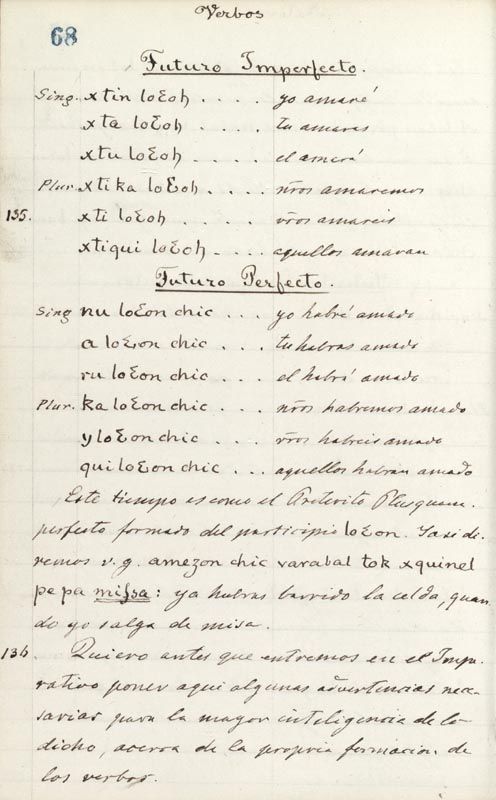 Verbos
68
Futuro Imperfecto.
Sing. xtin loƐoh . . . . yo amaré
xta loƐoh . . . . tu amaras
xtu loƐoh . . . . el amará
Plur. xtika loƐoh . . . . nr̃os amaremos
135. xti loƐoh . . . . vr̃os amareis
xtiqui loƐoh . . . . aquellos amaran
Futuro Perfecto.
Sing nu loƐon chic . . . yo habré amado
a loƐon chic . . . tu habras amado
ru loƐon chic . . . el habrá amado
Plur. ka loƐon chic . . . nr̃os habremos amado
y loƐon chic . . . vr̃os habreis amado
qui loƐon chic . . . aquellos habran amado
Este tiempo es como el Preterito Plusquam-
perfecto formado del participio loƐon. Y asi di-
remos v.g. amezon chic varabal tok xquinel
pe pa missa: ya habras barrido la celda, quan-
do yo salga de misa.
136. Quiero antes que entremos en el Impe-
rativo poner aqui algunas advertencias nece-
sarias para la mayor inteligencia de lo
dicho, acerca de la propria formacion de
los verbos.